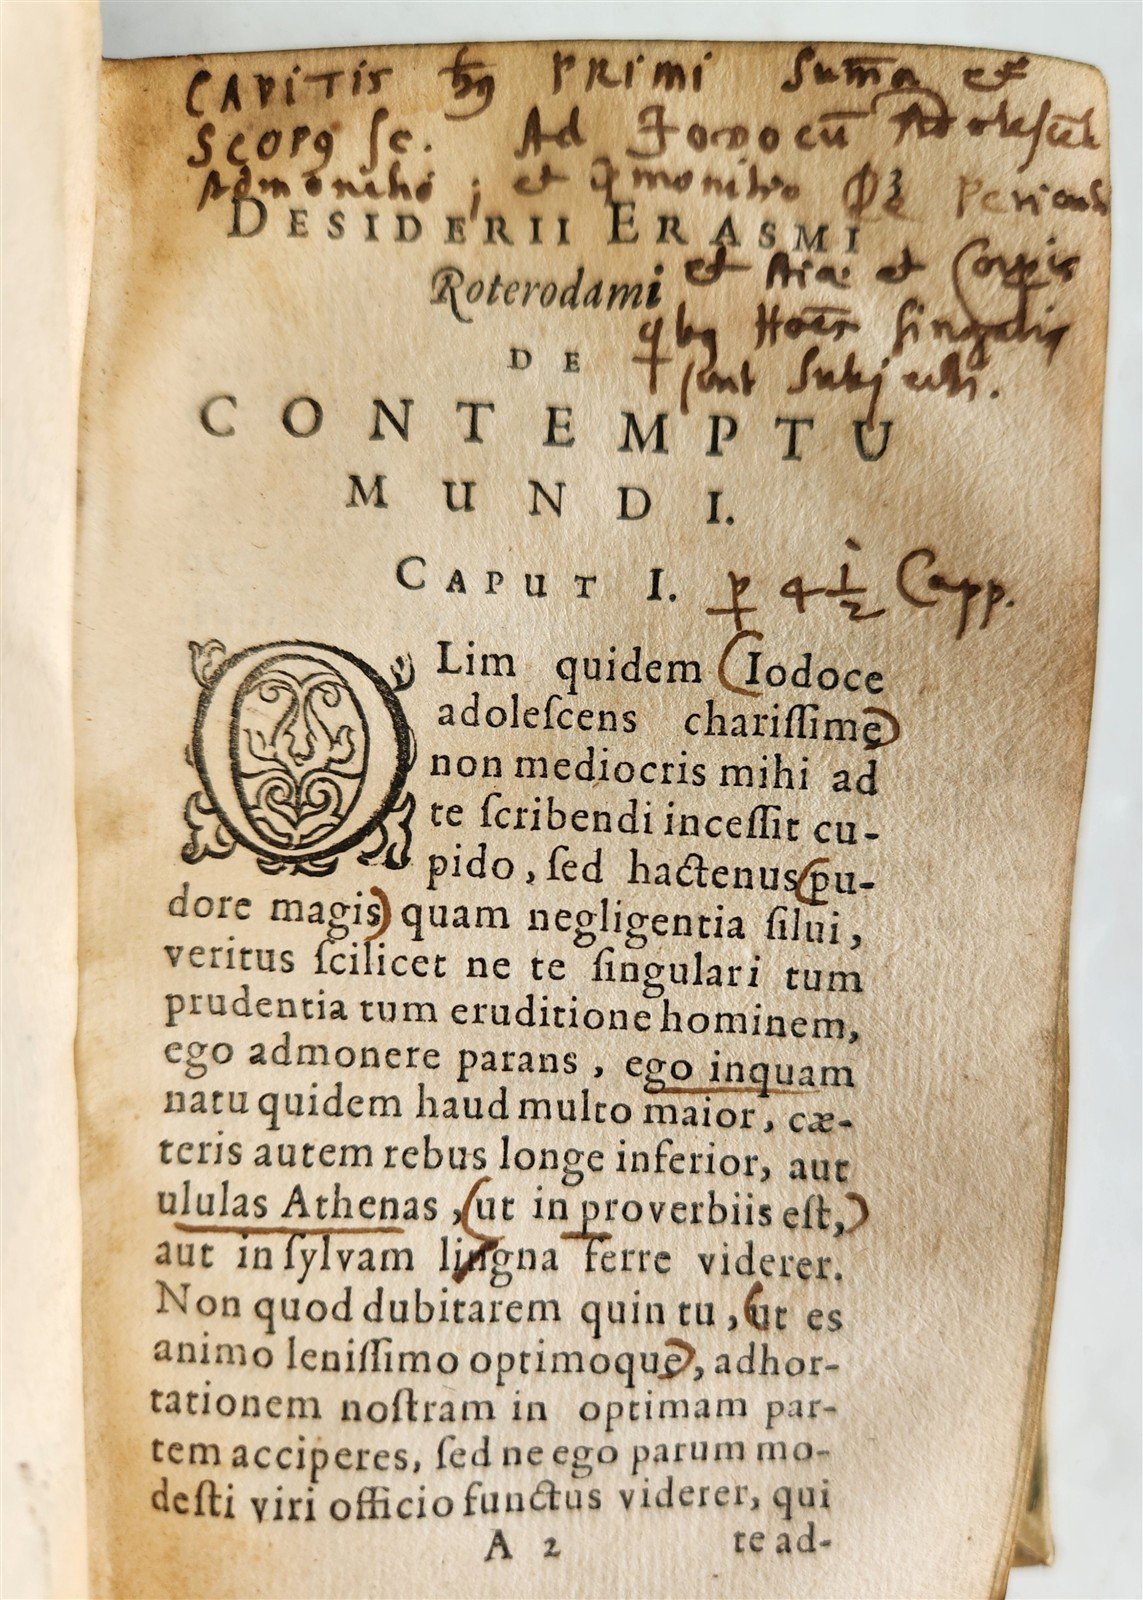 CAPITIS PRIMI Sum̄a et
SCOPꝰ sc. Ad Jodocū Adolescēt
Admonitio; et
DESIDERII ERASMI
Roterodami
et Aīæ et Corpis
DE
qbꝰ Hoēs singulis
sunt Subjecti.
CONTEMPTU
MUNDI.
CAPUT I. p 4 1/2 Capp.
OLim quidem (Iodoce
adoleſcens chariſſime)
non mediocris mihi ad
te ſcribendi inceſſit cu-
pido, ſed hactenus (pu-
dore magis) quam negligentia ſilui,
veritus ſcilicet ne te ſingulari tum
prudentia tum eruditione hominem,
ego admonere parans, ego inquam
natu quidem haud multo maior, cæ-
teris autem rebus longe inferior, aut
ululas Athenas, (ut in proverbiis eſt,)
aut in ſylvam lingna ferre viderer.
Non quod dubitarem quin tu, (ut es
animo leniſſimo optimoque), adhor-
tationem noſtram in optimam par-
tem acciperes, ſed ne ego parum mo-
deſti viri officio functus viderer, qui
A 2 te ad-